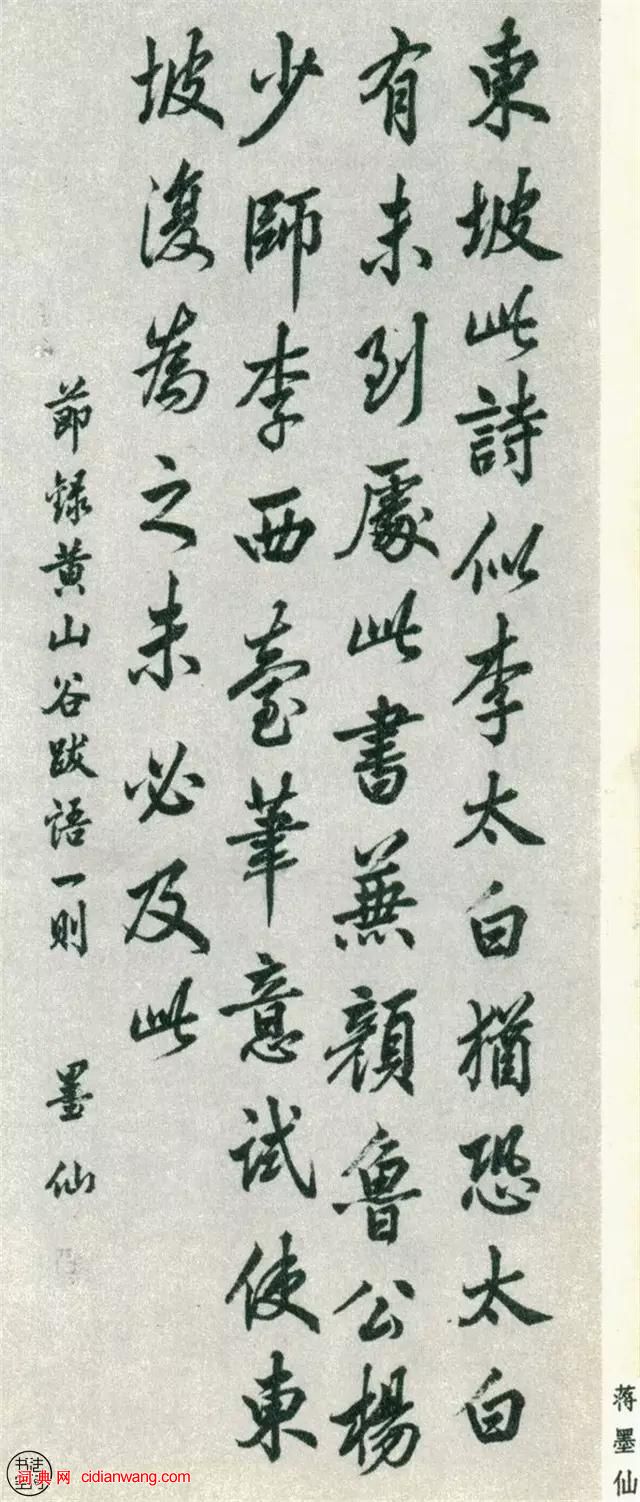 東坡此詩似李太白猶恐太白
有未到處此書兼顔魯公楊
少師李西臺筆意試使東
坡復為之未必及此
節録黄山谷跋語一則 墨仙
蒋墨仙
词典网 cidianwang.com